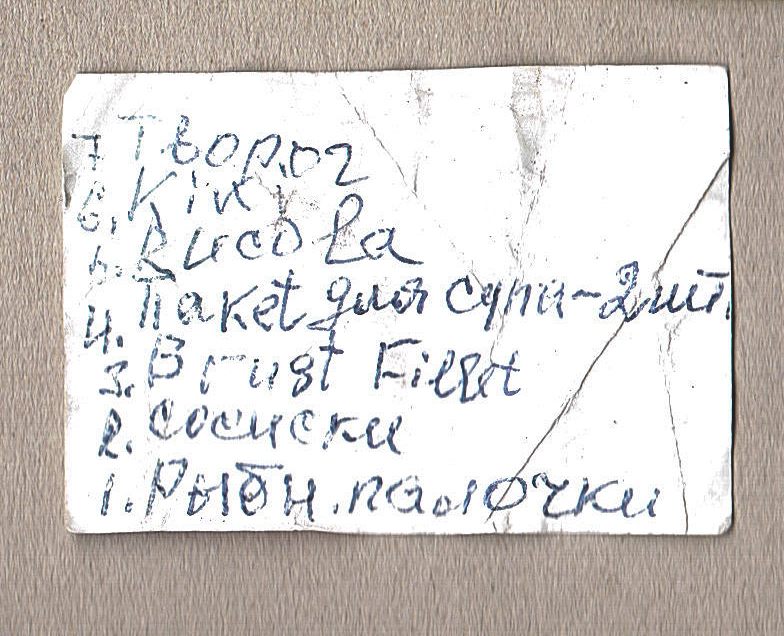 7 Творог
6. Kiri
5. Rucola
4. Пакет для супа-2шт.
3. Brust Fillet
2. сосиски
1. Рыбн. палочки